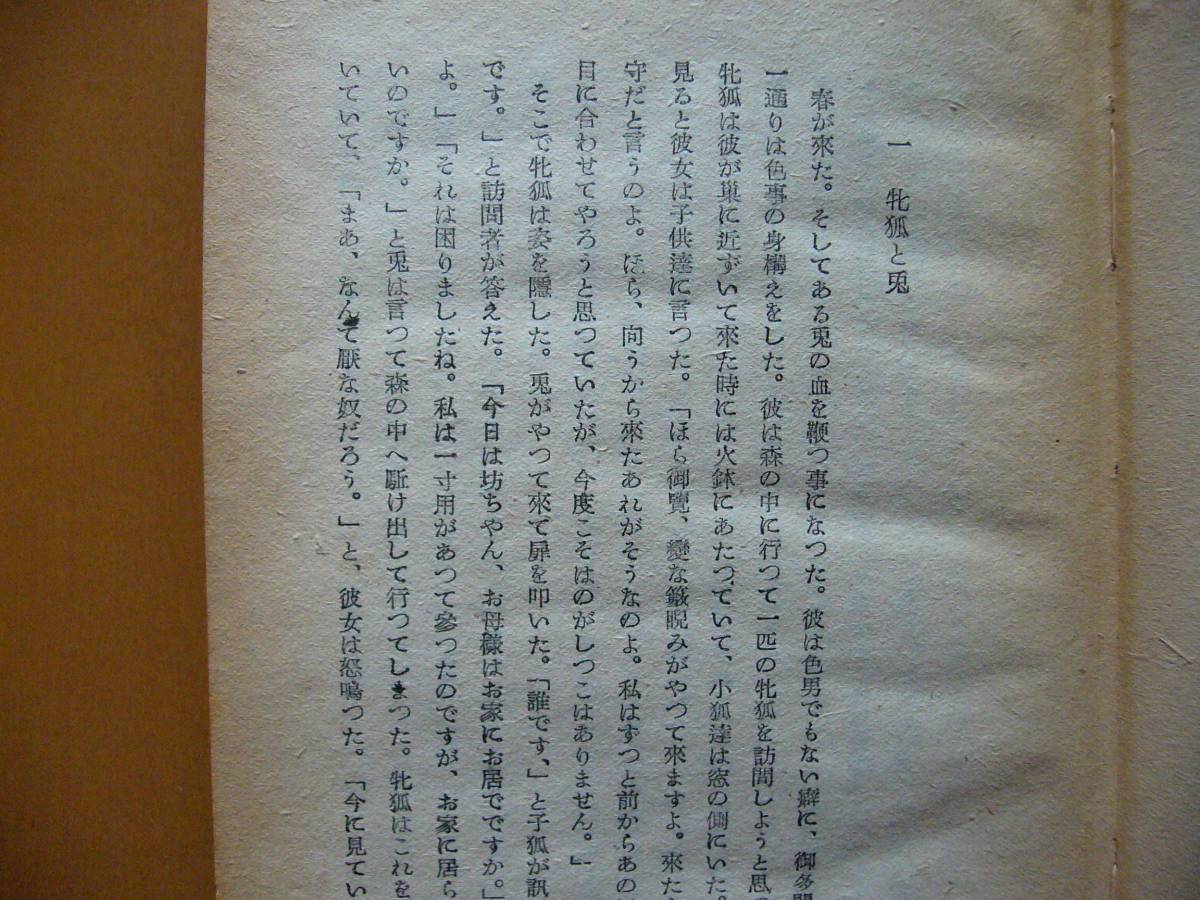 一　牝狐と兎
春が來た。そしてある兎の血を鞭つ事になつた。彼は色男でもない癖に、御多
一通りは色事の身構えをした。彼は森の中に行つて一匹の牝狐を訪問しようと思
牝狐は彼が巣に近ずいて來た時には火鉢にあたつていて、小狐達は窓の側にいた。
見ると彼女は子供達に言つた。「ほら御覽、變な籔睨みがやつて來ますよ。來た
守だと言うのよ。ほら、向うから來たあれがそうなのよ。私はずつと前からあの
目に合わせてやろうと思つていたが、今度こそはのがしつこはありません。」
そこで牝狐は姿を隱した。兎がやつて來て扉を叩いた。「誰です、」と子狐が訊
です。」と訪問者が答えた。「今日は坊ちやん、お母様はお家にお居でですか。」
よ。」「それは困りましたね。私は一寸用があつて參つたのですが、お家に居ら
いのですか。」と兎は言つて森の中へ駈け出して行つてしまつた。牝狐はこれを
いていて、「まあ、なんて厭な奴だろう。」と、彼女は怒鳴つた。「今に見てい